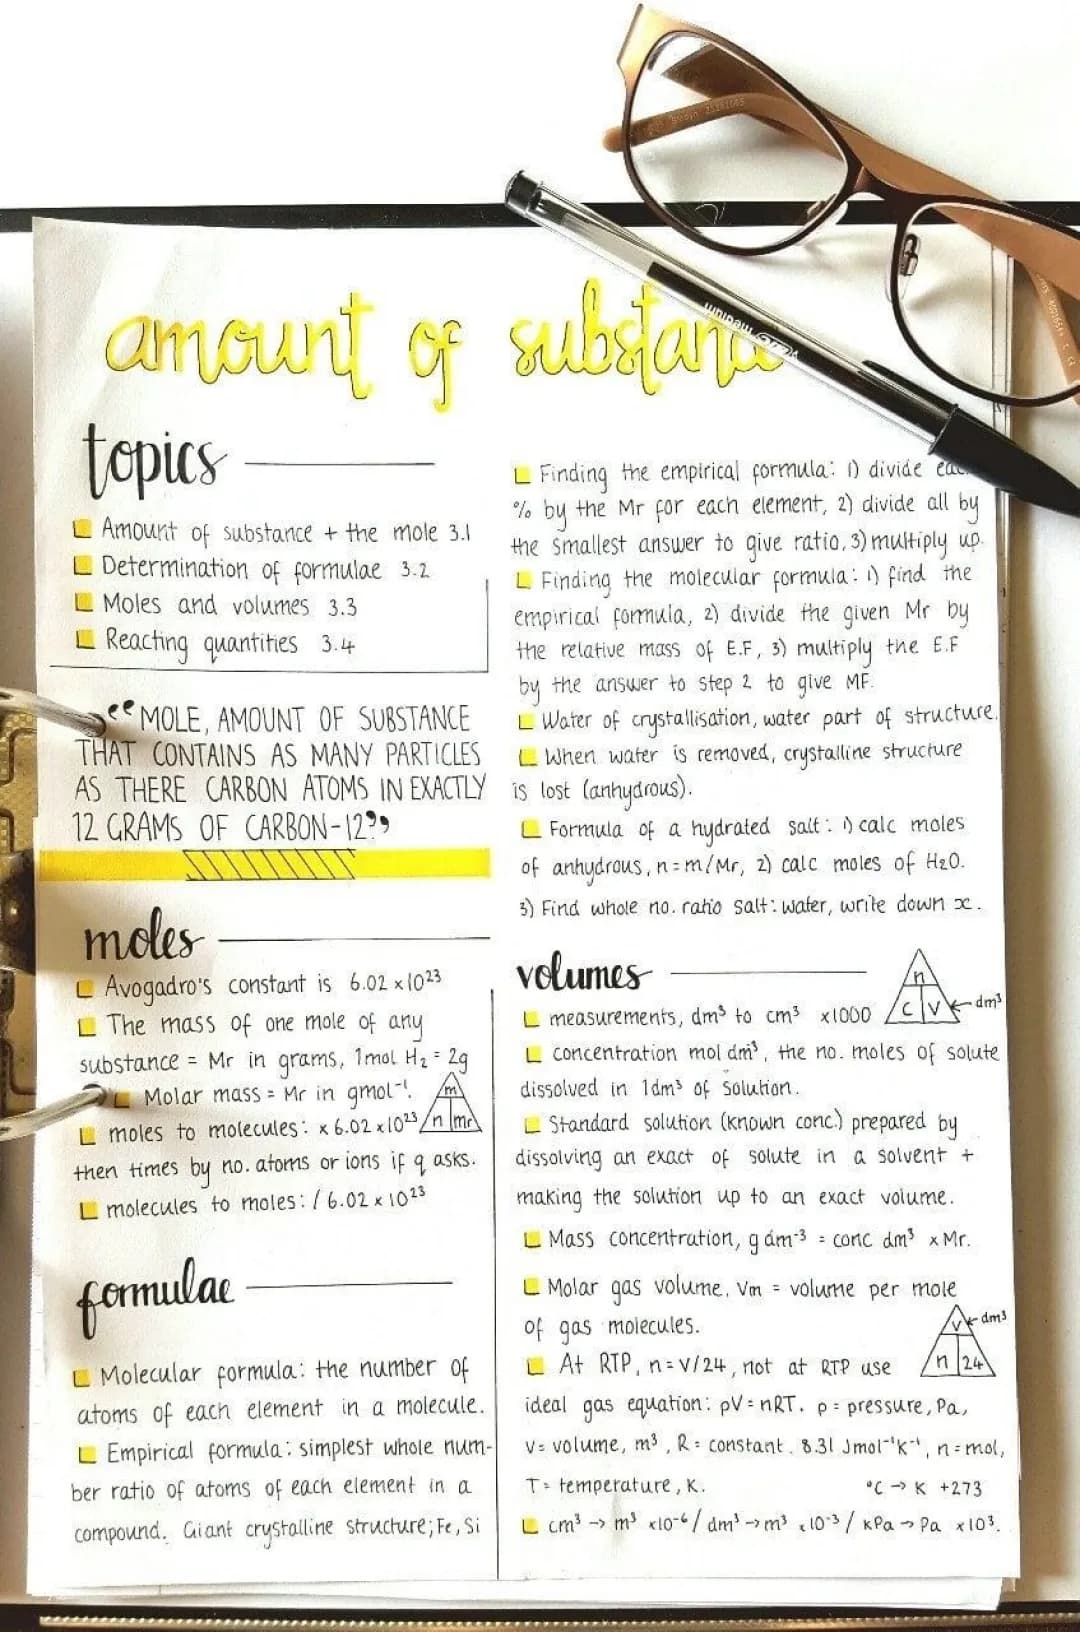 amount of substance
topics
Amount of substance + the mole 3.1
Determination of formulae 3.2
Moles and volumes 3.3
Reacting quantities 3.4
“MOLE, AMOUNT OF SUBSTANCE
THAT CONTAINS AS MANY PARTICLES
AS THERE CARBON ATOMS IN EXACTLY
12 GRAMS OF CARBON-12”
moles
Avogadro's constant is 6.02 x10²³
The mass of one mole of any
substance = Mr in grams, 1mol H₂ = 2g
Molar mass = Mr in gmol⁻¹.
m
moles to molecules: x 6.02 x10²³
n mr
then times by no. atoms or ions if q asks.
molecules to moles: / 6.02 x 10²³
formulae
Molecular formula: the number of
atoms of each element in a molecule.
Empirical formula: simplest whole num-
ber ratio of atoms of each element in a
compound. Giant crystalline structure; Fe, Si
Finding the empirical formula: 1) divide
% by the Mr for each element, 2) divide all by
the smallest answer to give ratio, 3) multiply up.
Finding the molecular formula: 1) find the
empirical formula, 2) divide the given Mr by
the relative mass of E.F, 3) multiply the E.F
by the answer to step 2 to give MF.
Water of crystallisation, water part of structure.
When water is removed, crystalline structure
is lost (anhydrous).
Formula of a hydrated salt: 1) calc moles
of anhydrous, n = m/Mr, 2) calc moles of H₂O.
3) Find whole no. ratio salt: water, write down x.
volumes
n
c v
dm³
measurements, dm³ to cm³ x1000
concentration mol dm³, the no. moles of solute
dissolved in 1dm³ of solution.
Standard solution (known conc.) prepared by
dissolving an exact of solute in a solvent +
making the solution up to an exact volume.
Mass concentration, g dm⁻³ = conc dm³ x Mr.
Molar gas volume, Vm = volume per mole
of gas molecules.
V
dm³
n 24
At RTP, n = V/24, not at RTP use
ideal gas equation: pV = nRT. p = pressure, Pa,
V = volume, m³, R = constant. 8.31 Jmol⁻¹K⁻¹, n = mol,
T = temperature, K.
°C → K +273
cm³ → m³ x10⁻⁶ / dm³ → m³ x10⁻³ / kPa → Pa x10³.